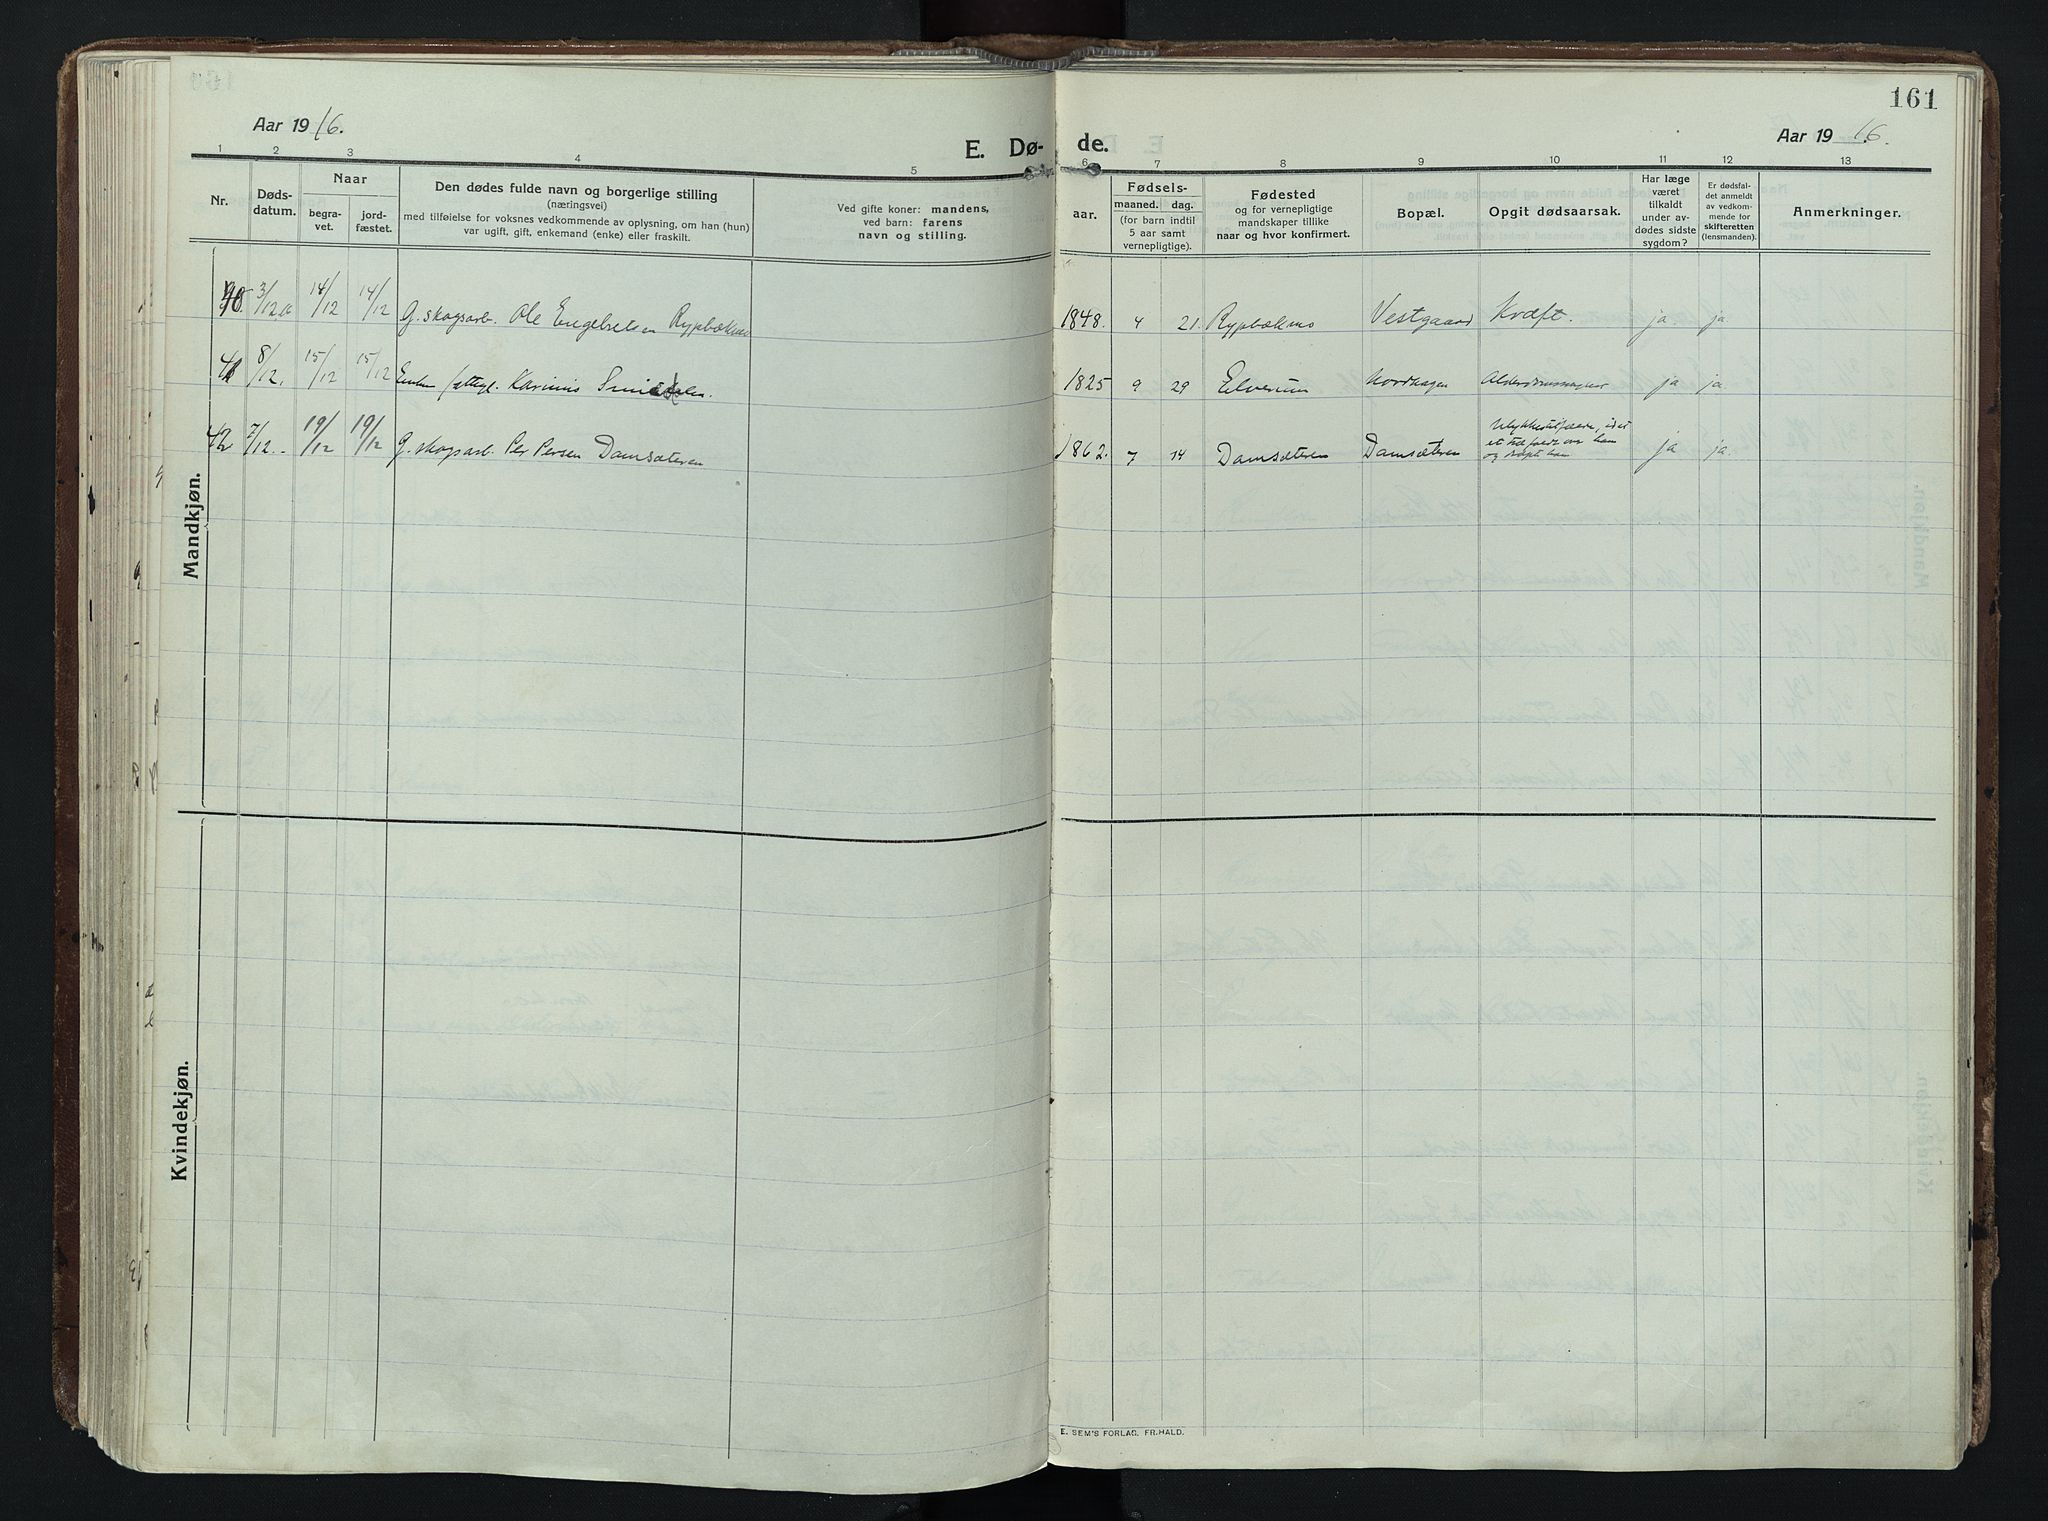 161
Aar 1916.
E. Dø-
de.
Aar 1916.
1 2 3 4 5 6 7 8 9 10 11 12 13
Nr.
Døds-
datum.
Naar
begra-
vet.
jord-
fæstet.
Den dødes fulde navn og borgerlige stilling
(næringsvei)
med tilføielse for voksnes vedkommende av oplysning, om han (hun)
var ugift, gift, enkemand (enke) eller fraskilt.
Ved gifte koner: mandens,
ved barn: farens
navn og stilling.
aar.
Fødsels-
maaned. dag.
(for barn indtil
5 aar samt
vernepligtige).
Fødested
og for vernepligtige
mandskaper tillike
naar og hvor konfirmert.
Bopæl.
Opgit dødsaarsak.
Har læge
været
tilkaldt
under av-
dødes sidste
sygdom?
Er dødsfal-
det anmeldt
av vedkom-
mende for
skifteretten
(lensmanden).
Anmerkninger.
40. 3/12 14/12 14/12 G. skogsarb. Ole Engebretsen Rypbækmo 1848. 4 21. Rypbækmo Vestgaard Kræft. ja. ja.
41 8/12. 15/12 15/12 Karinus 1825 9 29 Elverum Nordhagen ja ja.
42 7/12. 19/12 19/12 G. skogsarb. Per Persen Damsæteren 1862. 7 14 Damsæteren Damsæteren Ulykkestilfælde, idet
et træ faldt over ham
og dræpte ham ja ja.
Mandkjøn.
Kvindekjøn.
E. SEM'S FORLAG. FR.HALD.